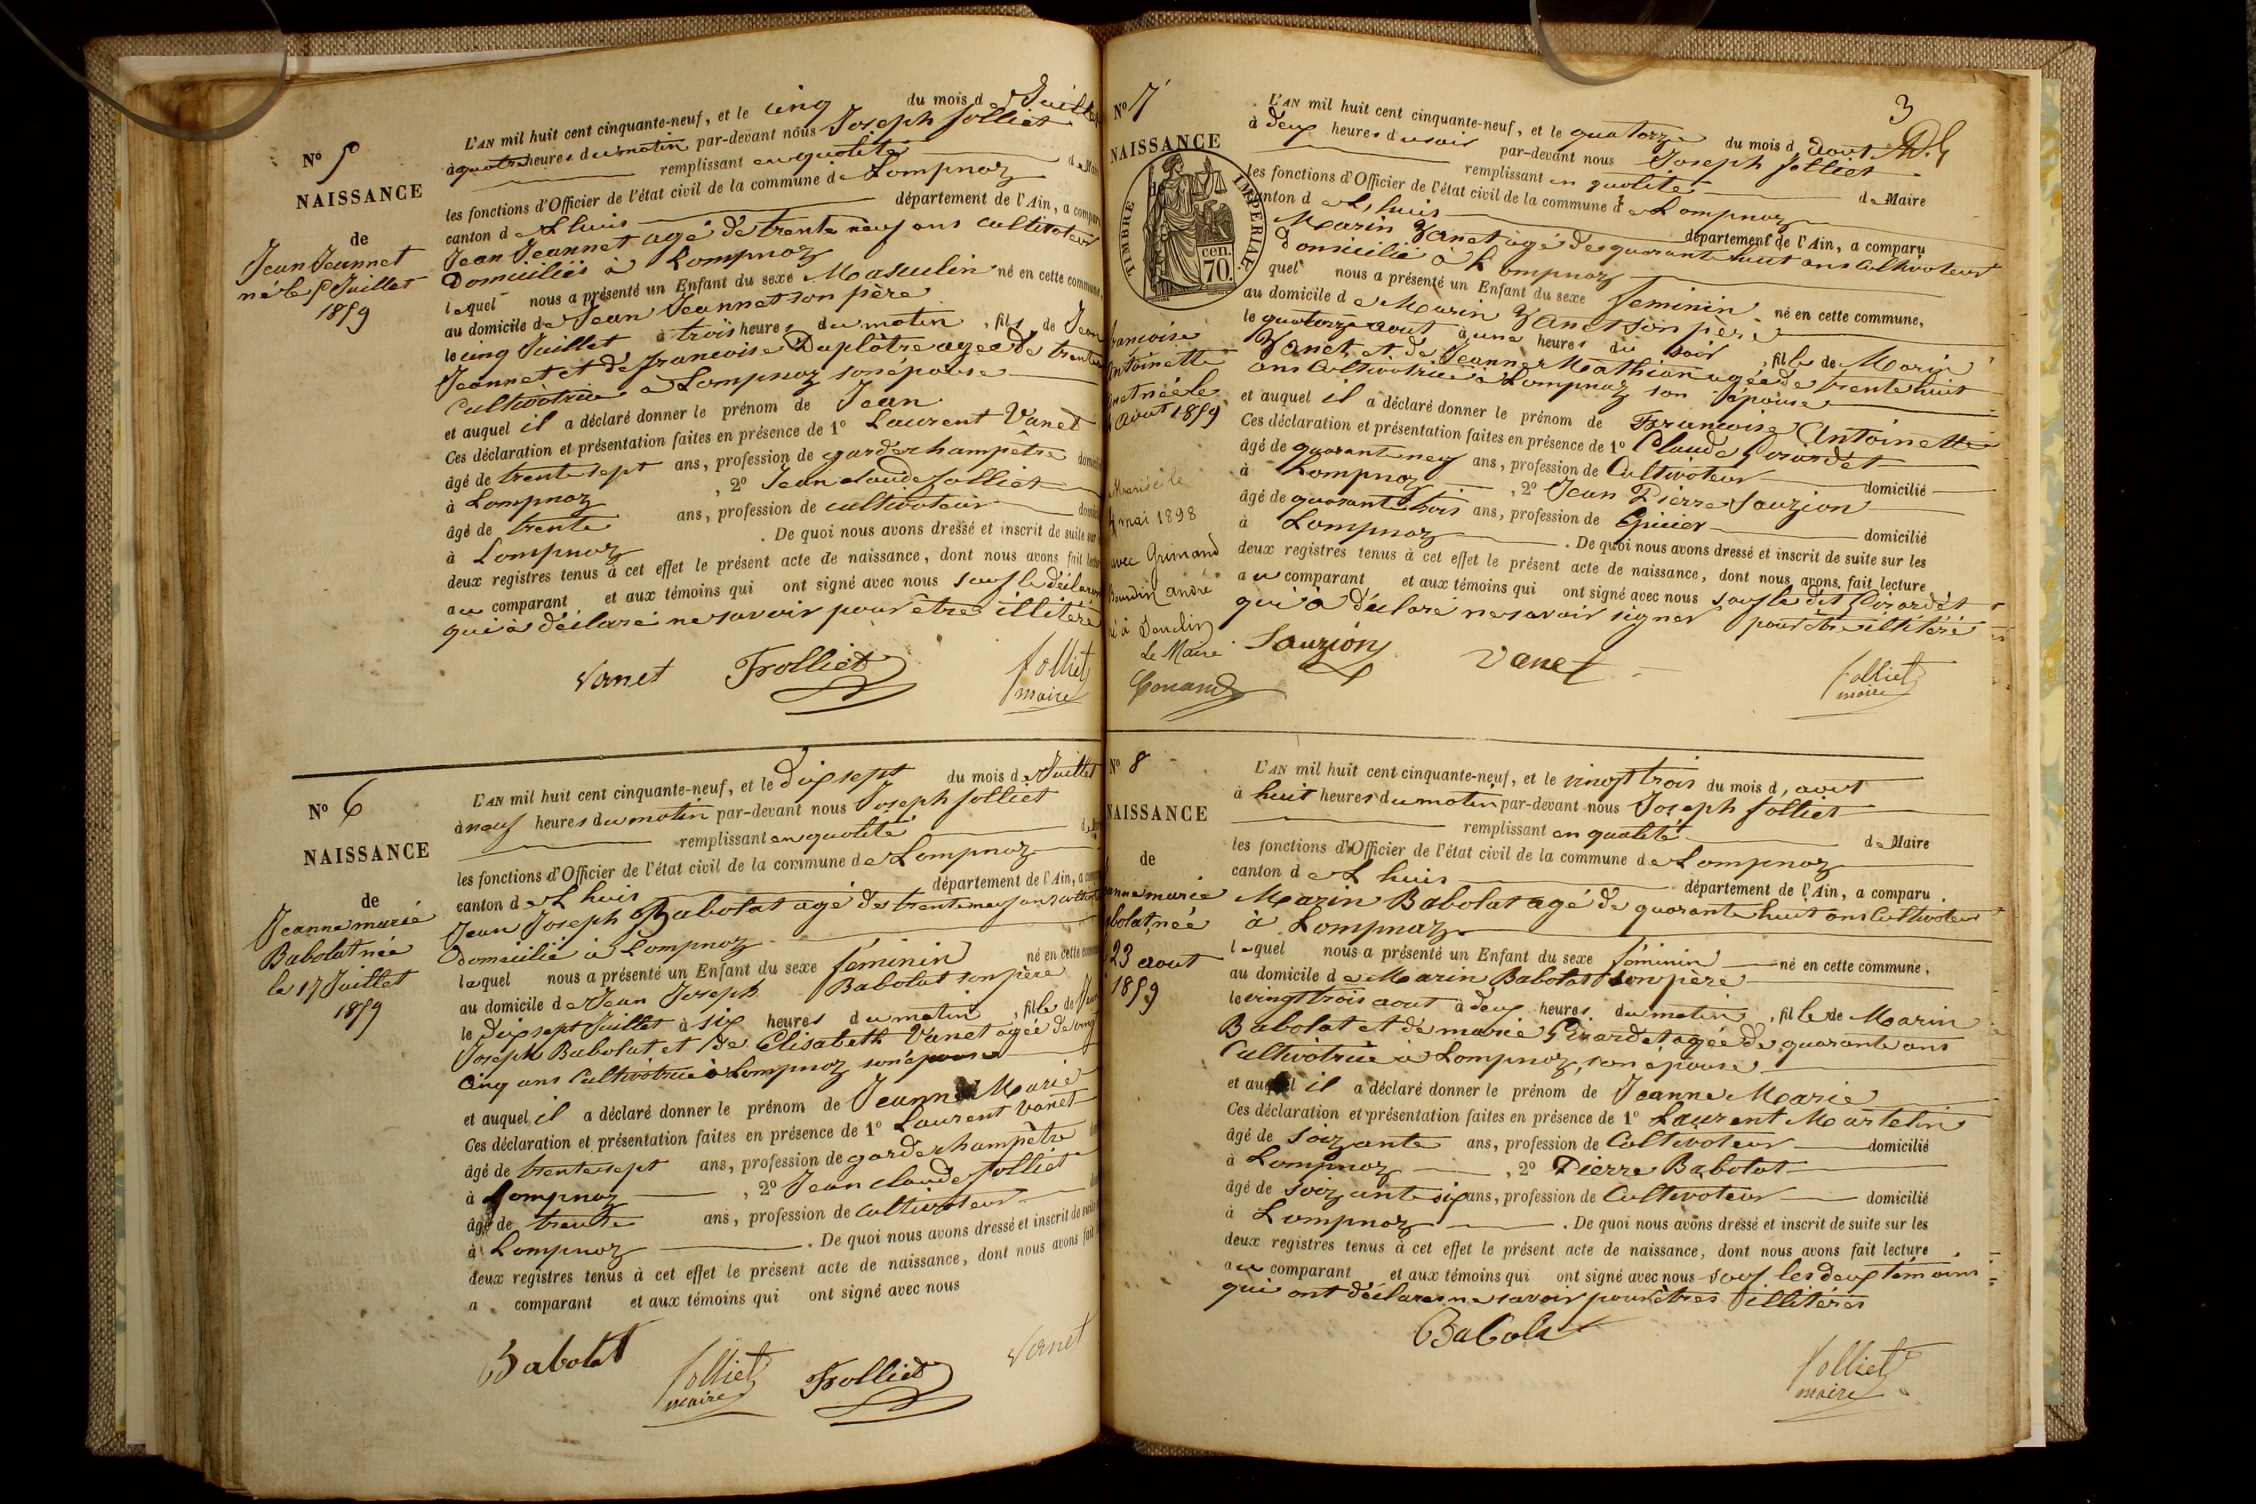 N° 5
NAISSANCE
de
Jean Jeannet
né le 5 Juillet
1859
L'AN mil huit cent cinquante-neuf, et le cinq du mois de Juillet
à quatre heures du matin par-devant nous Joseph Jolliet
remplissant en qualité de
les fonctions d'Officier de l'état civil de la commune de Lompnaz
canton de Lhuis département de l'Ain, a
Jean Jeannet agé de trente neuf ans cultivateur
Domiciliés à Lompnaz
lequel nous a présenté un Enfant du sexe Masculin né en cette commune,
au domicile de Jean Jeannet son père
le cinq Juillet à trois heures du matin, fils de Jean
Jeannet et de francoise Duplâtre agée de trente
Cultivatrice a Lompnaz son épouse
et auquel il a déclaré donner le prénom de Jean
Ces déclaration et présentation faites en présence de 1° Laurent Vanet
âgé de trente sept ans, profession de garde champêtre
à Lompnaz, 2° Jean claude Jolliet
âgé de trente ans, profession de cultivateur
à Lompnaz. De quoi nous avons dressé et inscrit de suite sur
deux registres tenus à cet effet le présent acte de naissance, dont nous avons fait
au comparant et aux témoins qui ont signé avec nous sauf le
qui à déclaré ne savoir pour être illitéré
Vanet Jrolliet Jolliet
maire
N° 6
NAISSANCE
de
Jeanne marie
Babolat née
le 17 Juillet
1859
L'AN mil huit cent cinquante-neuf, et le dix sept du mois de Juillet
à neuf heures du matin par-devant nous Joseph Jolliet
remplissant en qualité
les fonctions d'Officier de l'état civil de la commune de Lompnaz
canton de Lhuis département de l'Ain, a
Jean Joseph Babolat agé de trente neuf ans
Domicilié à Lompnaz
lequel nous a présenté un Enfant du sexe féminin né en cette
au domicile de Jean Joseph Babolat son père
le dix sept Juillet à six heures du matin, fille de
Joseph Babolat et de Elisabeth Vanet agée de vingt
Cinq ans Cultivatrice à Lompnaz son épouse
et auquel il a déclaré donner le prénom de Jeanne Marie
Ces déclaration et présentation faites en présence de 1° Laurent Vanet
âgé de trente sept ans, profession de garde champêtre
à Lompnaz, 2° Jean claude Jolliet
âgé de trente ans, profession de Cultivateur
à Lompnaz. De quoi nous avons dressé et inscrit de
deux registres tenus à cet effet le présent acte de naissance, dont nous avons fait
a comparant et aux témoins qui ont signé avec nous
Babolat Jolliet Jrolliet Vanet
maire
3
N° 7
NAISSANCE
de
TIMBRE IMPERIAL
70 cen.
Antoinette
née le
aout 1859
mai 1898
avec Grimand
andré
Le Maire
L'AN mil huit cent cinquante-neuf, et le quatorze du mois d aout
à deux heures du soir par-devant nous Joseph Jolliet
remplissant en qualité de Maire
les fonctions d'Officier de l'état civil de la commune de Lompnaz
canton de Lhuis département de l'Ain, a comparu
Marin Vanet agé de quarante huit ans Cultivateur
Domicilié à Lompnaz
quel nous a présenté un Enfant du sexe feminin né en cette commune,
au domicile de Marin Vanet son père
le quatorze aout à une heures du soir, fille de Marin
Vanet et de Jeanne Mathian agée de trente huit
ans Cultivatrice à Lompnaz son épouse
et auquel il a déclaré donner le prénom de Francoise Antoinette
Ces déclaration et présentation faites en présence de 1° Claude Girardet
âgé de quarante neuf ans, profession de Cultivateur domicilié
à Lompnaz, 2° Jean Pierre Sauzion
âgé de quarante trois ans, profession de Epicier domicilié
à Lompnaz. De quoi nous avons dressé et inscrit de suite sur les
deux registres tenus à cet effet le présent acte de naissance, dont nous avons fait lecture
au comparant et aux témoins qui ont signé avec nous sauf le dit Girardet
qui à déclaré ne savoir signer pour être illitéré
Sauzion Vanet Jolliet
maire
N° 8
NAISSANCE
de
marie
née
23 aout
1859
L'AN mil huit cent cinquante-neuf, et le vingt trois du mois d, aout
à huit heures du matin par-devant nous Joseph Jolliet
remplissant en qualité de Maire
les fonctions d'Officier de l'état civil de la commune de Lompnaz
canton de Lhuis département de l'Ain, a comparu
Marin Babolat agé de quarante huit ans Cultivateur
à Lompnaz
lequel nous a présenté un Enfant du sexe féminin né en cette commune,
au domicile de Marin Babolat son père
le vingt trois aout à deux heures du matin, fille de Marin
Babolat et de marie Girardet agée de quarante ans
Cultivatrice à Lompnaz, son épouse
et auquel il a déclaré donner le prénom de Jeanne Marie
Ces déclaration et présentation faites en présence de 1° Laurent Martelin
âgé de soizante ans, profession de Cultivateur domicilié
à Lompnaz, 2° Pierre Babolat
âgé de soizante six ans, profession de Cultivateur domicilié
à Lompnaz. De quoi nous avons dressé et inscrit de suite sur les
deux registres tenus à cet effet le présent acte de naissance, dont nous avons fait lecture
au comparant et aux témoins qui ont signé avec nous sauf les deux témoins
qui ont déclarés ne savoir pour êtres illitérés
Babolat
Jolliet
maire